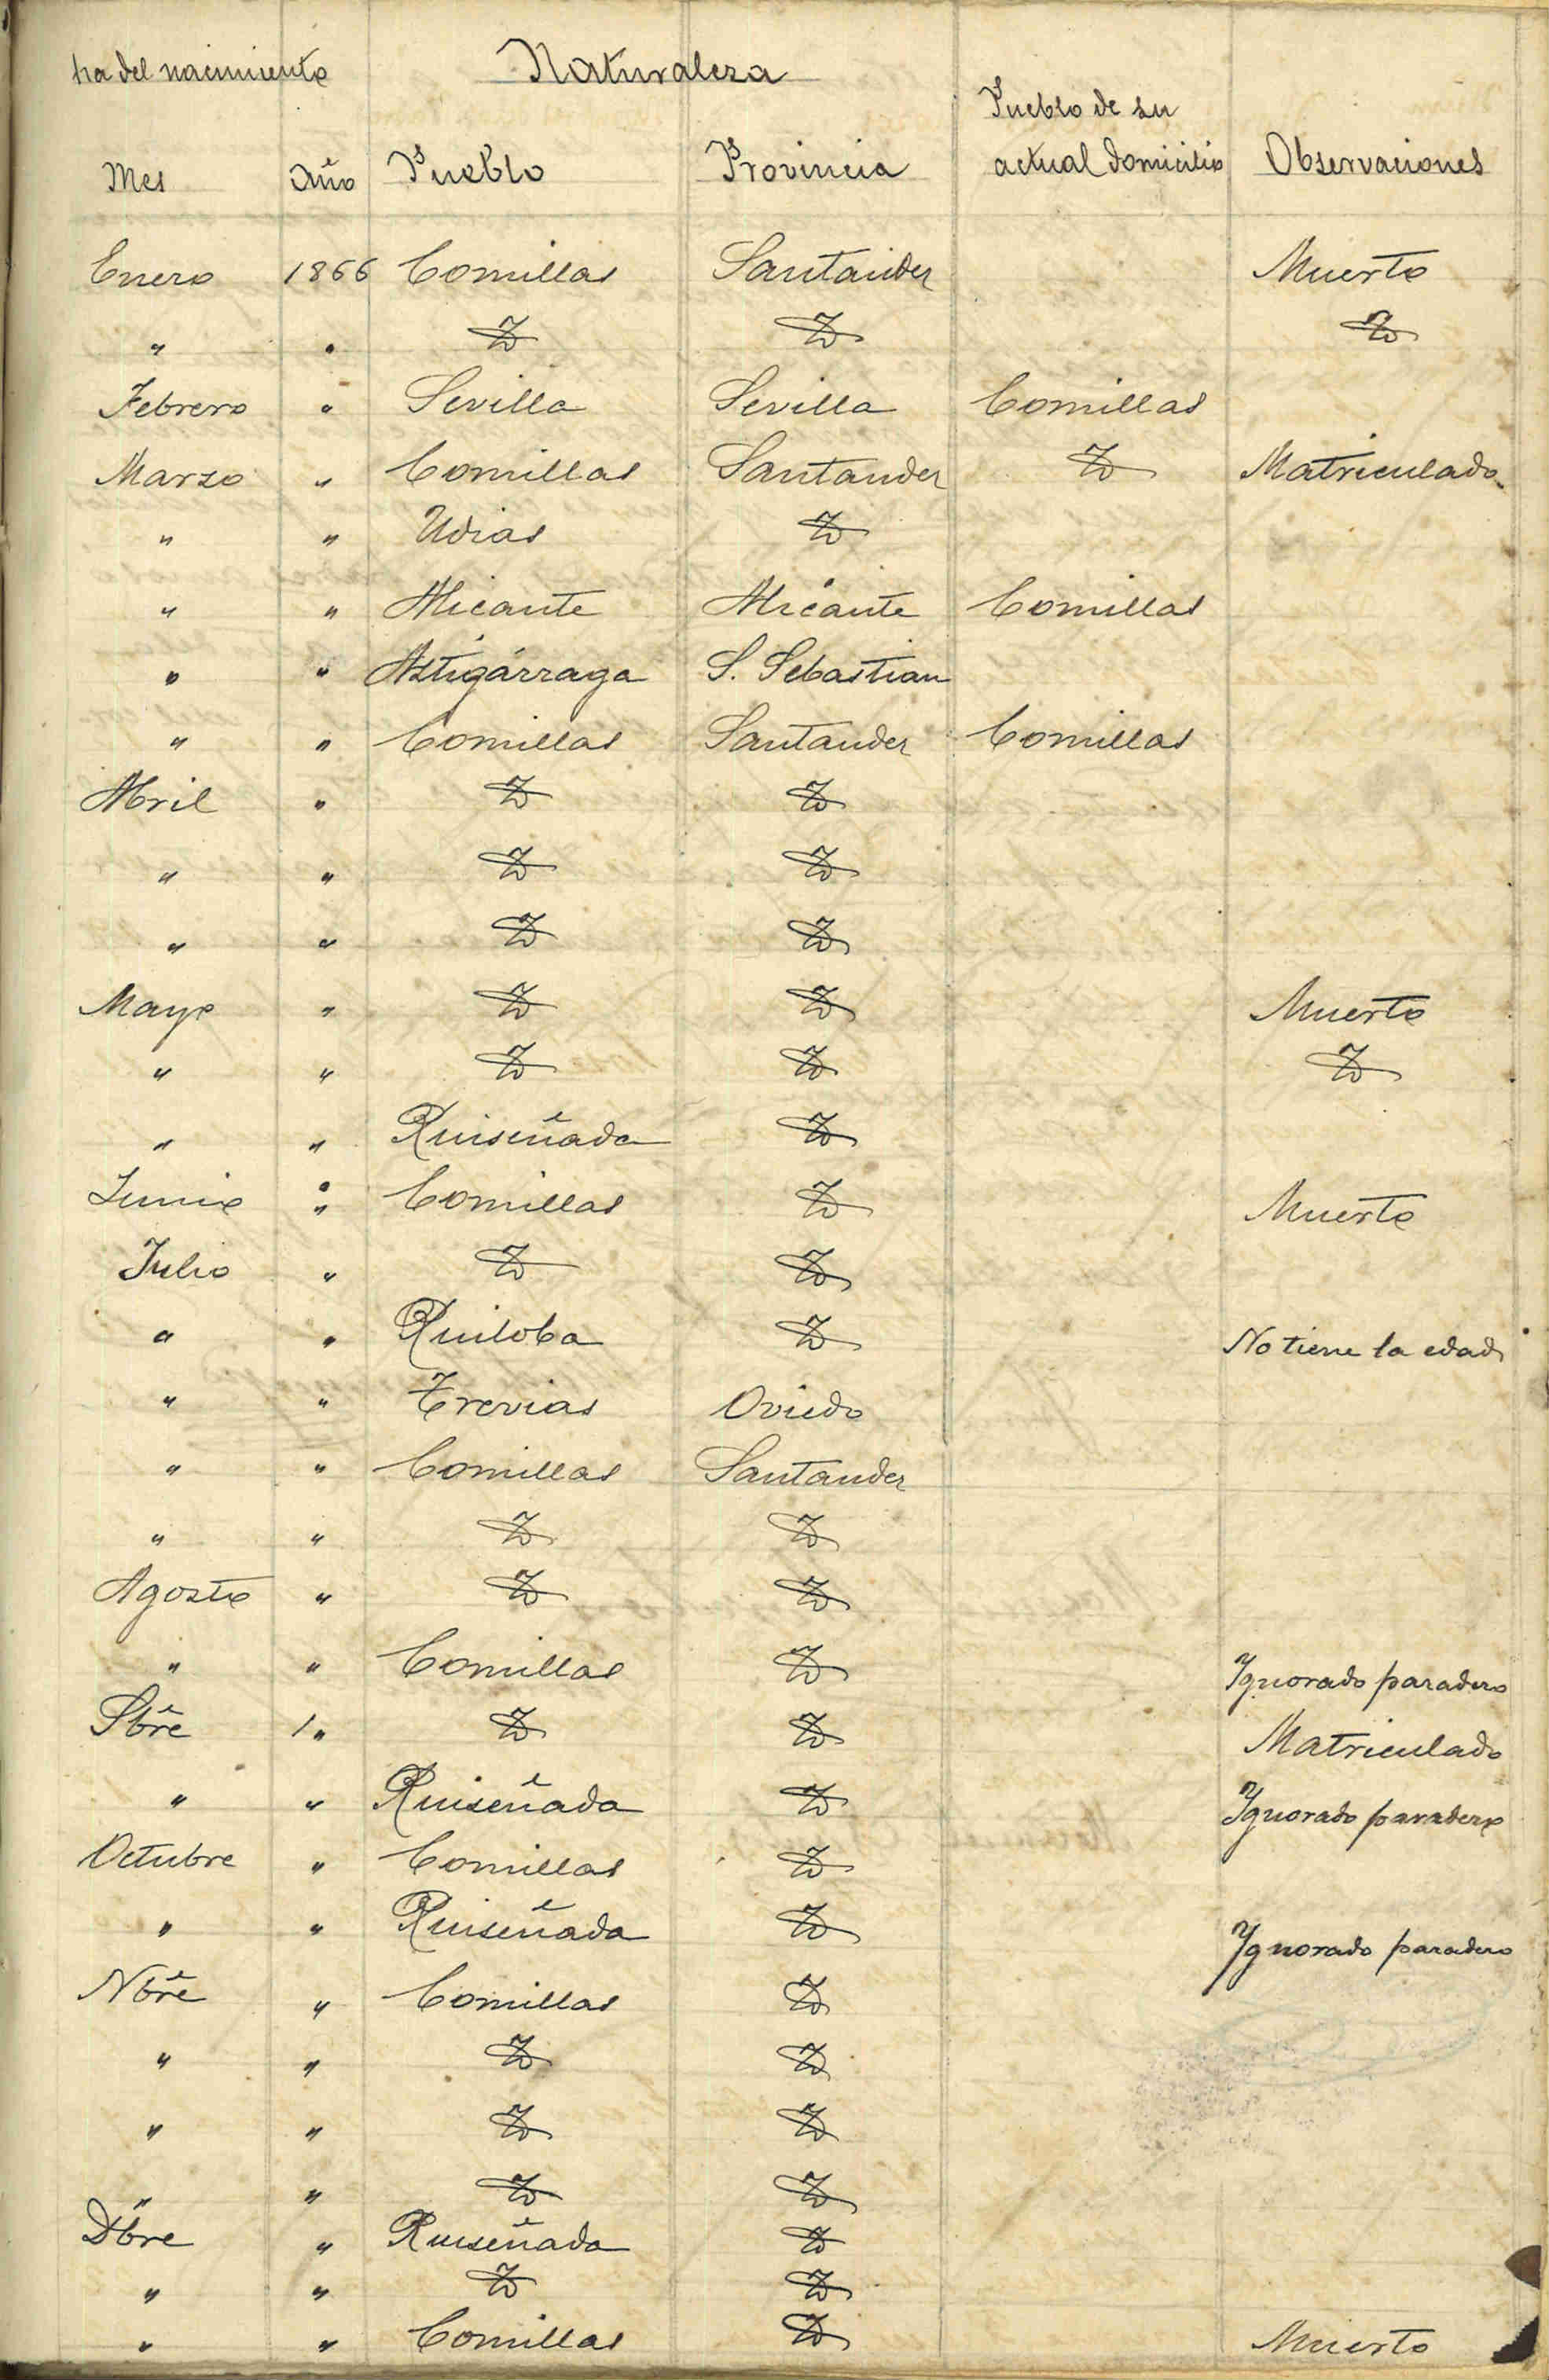 ha del nacimiento Naturaleza
Pueblo de su
Mes Año Pueblo Provincia actual domicilio Observaciones
Enero 1866 Comillas Santander Muerto
" " Yd Yd Yd
Febrero " Sevilla Sevilla Comillas
Marzo " Comillas Santander Yd Matriculado
" " Udias Yd
" " Alicante Alicante Comillas
" " Astigárraga S. Sebastian
" " Comillas Santander Comillas
Abril " Yd Yd
" " Yd Yd
" " Yd Yd
Mayo " Yd Yd Muerto
" " Yd Yd Yd
" " Ruiseñada Yd
Junio " Comillas Yd Muerto
Julio " Yd Yd
" " Ruiloba Yd No tiene la edad
" " Trevias Oviedo
" " Comillas Santander
" " Yd Yd
Agosto " Yd Yd
" " Comillas Yd Ygnorado paradero
Sbre 1" Yd Yd Matriculado
" " Ruiseñada Yd Ygnorado paradero
Octubre " Comillas Yd
" " Ruiseñada Yd Ygnorado paradero
Nbre " Comillas Yd
" " Yd Yd
" " Yd Yd
" " Yd Yd
Dbre " Ruiseñada Yd
" " Yd Yd
" " Comillas Yd Muerto